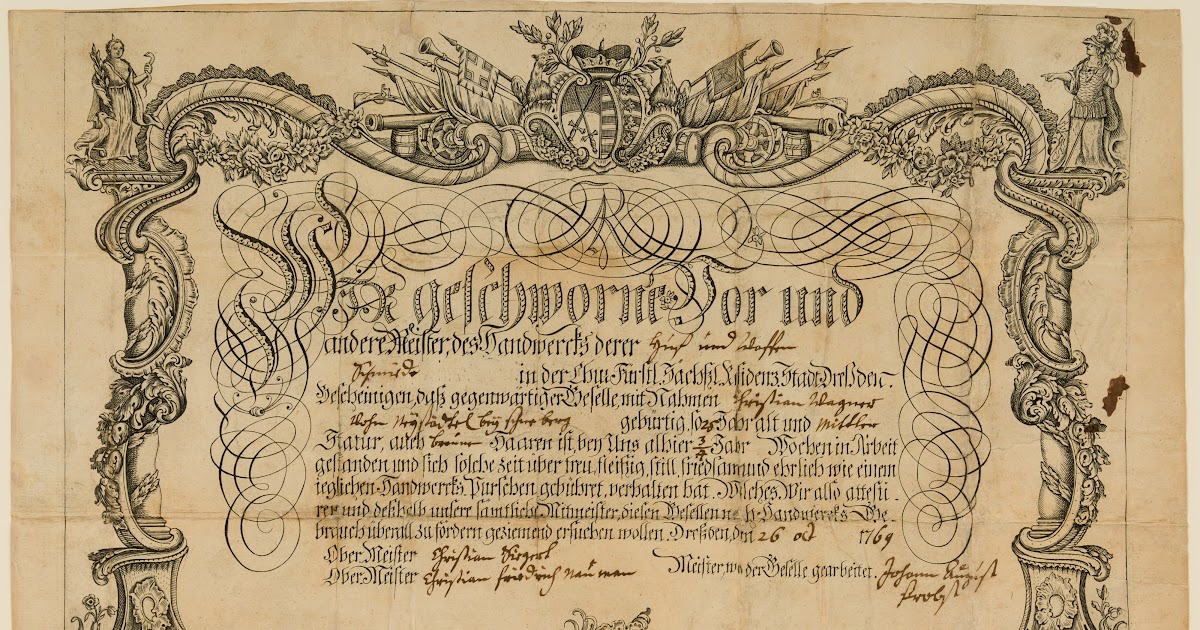 Wir geschworne Vor und
andere Meister, des Handwercks derer Huf und Waffen
Schmiede in der Chur-Fürstl. Sächßl. Residenz Stadt Dreßden.
Bescheinigen, daß gegenwärtiger Geselle, mit Nahmen Christian Wagner
Neustädtel bey Schneeberg gebürtig, so 25 Jahr alt und mittler
Statur, auch braune Haaren ist, bey Uns alhier 3/4 Jahr Wochen in Arbeit
gestanden und sich solche Zeit über treu, fleißig, still, friedsam und ehrlich wie einem
jeglichen Handwercks Purschen gebühret, verhalten hat. Welches Wir also attesti-
ren und deßhalb unsere sämtliche Mitmeister, diesen Gesellen nach Handwercks Ge-
brauch überall zu fördern geziemend ersuchen wollen. Dreßden, den 26 oct 1769
Ober Meister Christian
Ober Meister Christian Friedrich Nauman Meister, wo der Geselle gearbeitet. Johann August
Probst